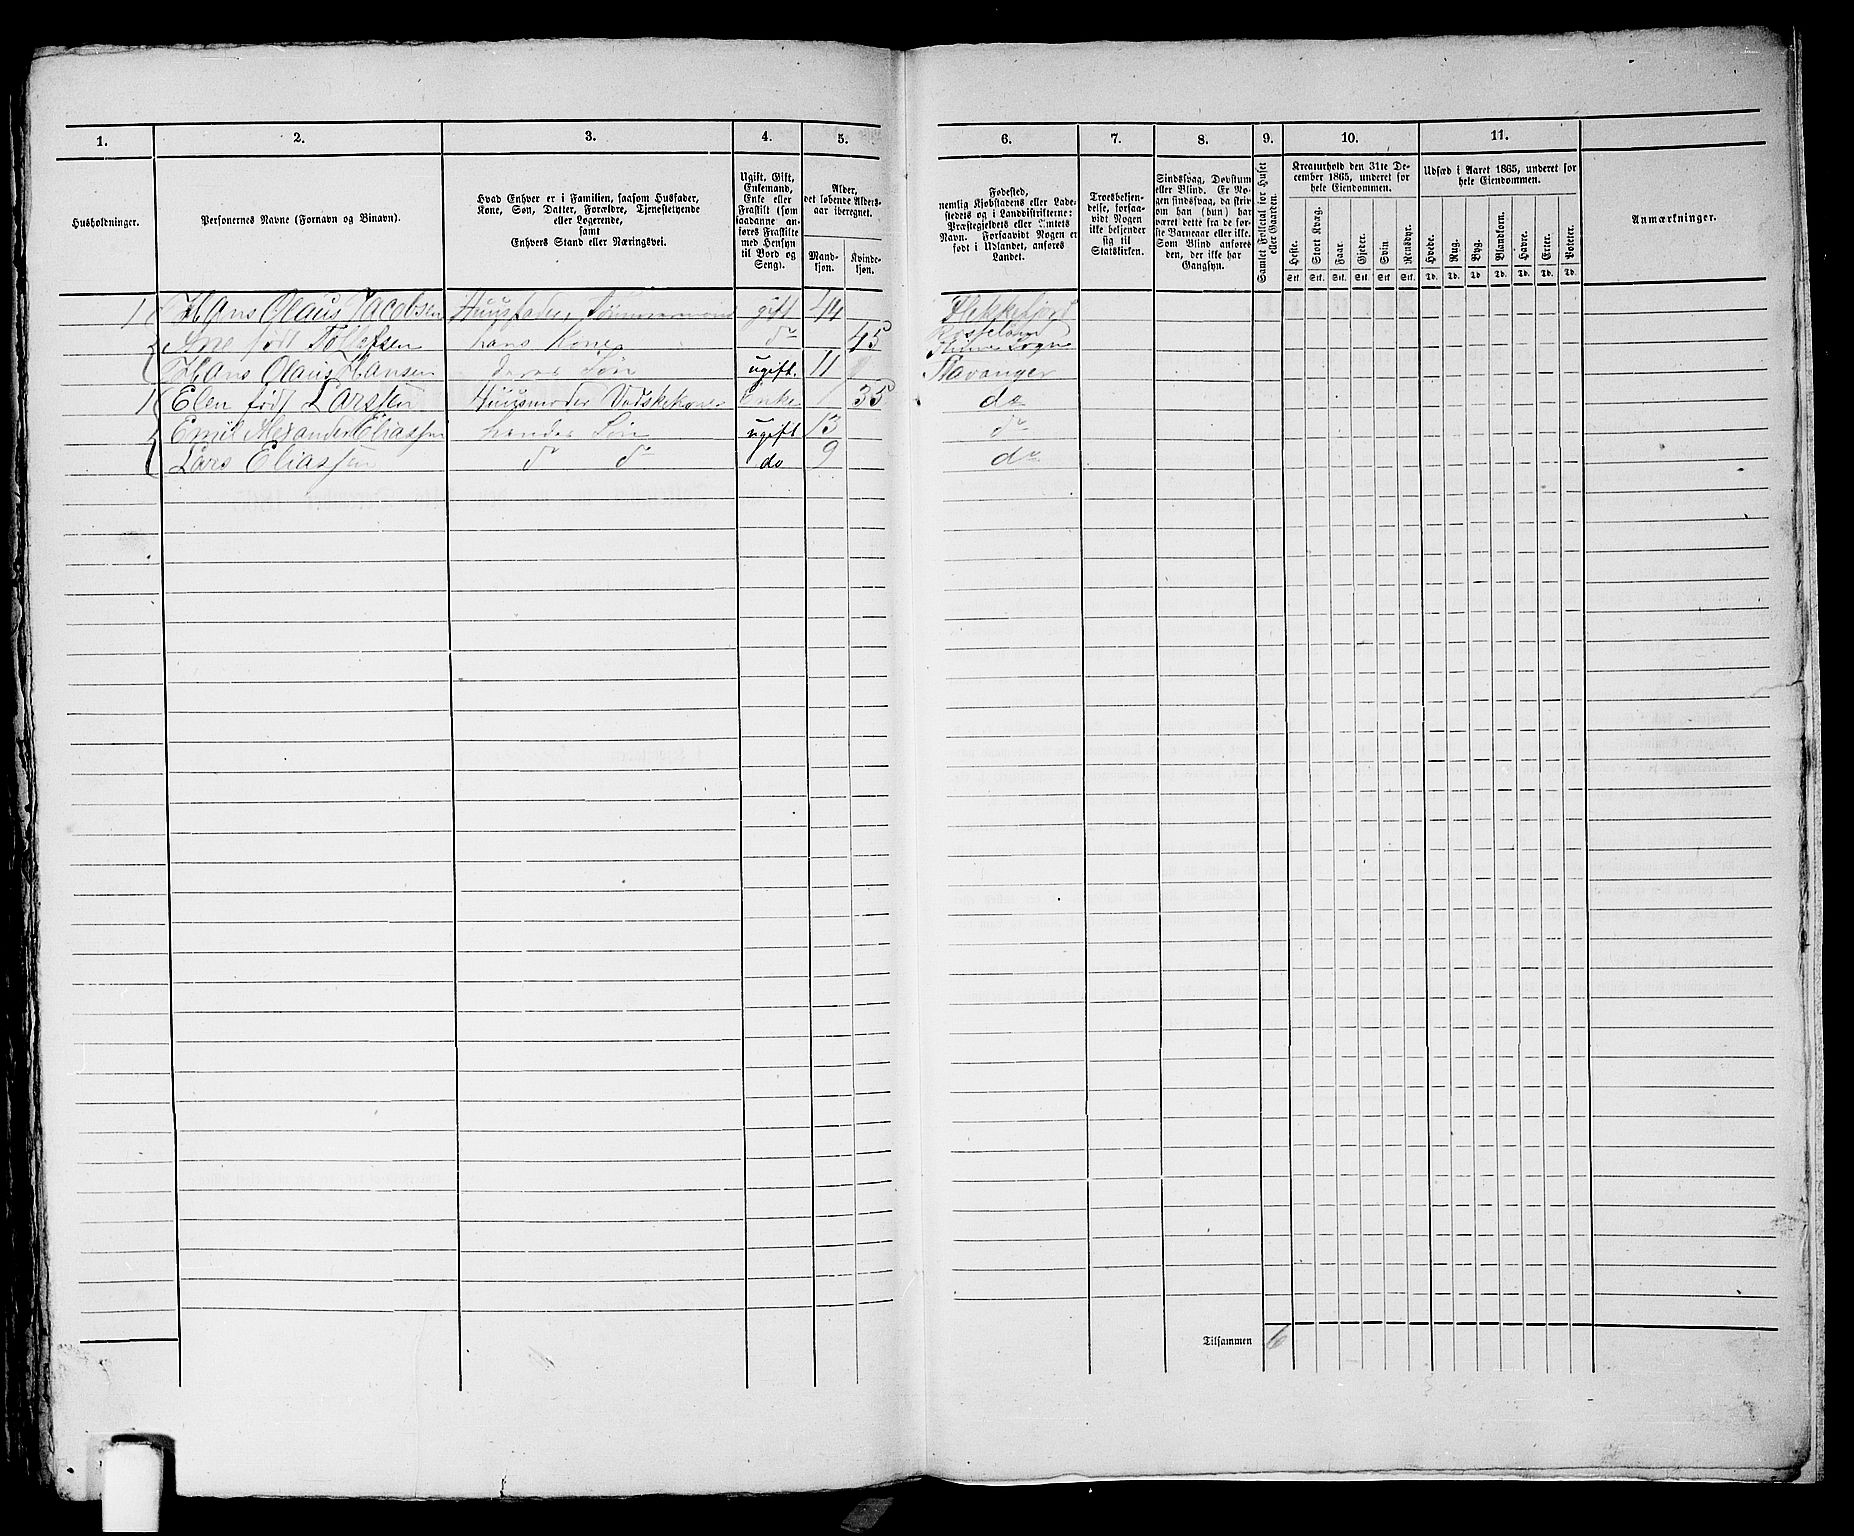 1. 2. 3. 4. 5. 6. 7. 8. 9. 10. 11.
Husholdninger.
Personernes Navne (Fornavn og Binavn).
Hvad Enhver er i Familien, saasom Husfader,
Kone, Søn, Datter, Forældre, Tjenestetyende
eller Logerende,
samt
Enhvers Stand eller Næringsvei.
Ugift, Gift,
Enkemand,
Enke eller
Fraskilt (som
saadanne an-
føres Fraskilte
med Hensyn
til Bord og
Seng).
Alder,
det løbende Alders-
aar iberegnet.
Mand-
kjøn.
Kvinde-
kjøn.
Fødested,
nemlig Kjøbstadens eller Lade-
stedets og i Landdistrikterne:
Præstegjeldets eller Amtets
Navn. Forsaavidt Nogen er
født i Udlandet, anføres
Landet.
Troesbekjen-
delse, forsaa-
vidt Nogen
ikke bekjender
sig til
Statskirken.
Sindssvag, Døvstum
eller Blind. Er No-
gen sindssvag, da skriv
om han (hun) har
været dette fra de før-
ste Barneaar eller ikke.
Som Blind anføres
den, der ikke har
Gangsyn.
Samlet Folketal for Huset
eller Gaarden.
Kreaturhold den 31te De-
cember 1865, underet for
hele Eiendommen.
Heste. Stort Kvæg. Faar. Gjeder. Svin Rensdyr.
Stk. Stk. Stk. Stk. Stk. Stk.
Udsæd i Aaret 1865, underet for
hele Eiendommen.
Hvede. Rug. Byg. Blandkorn. Havre. Erter. Poteter.
Td. Td. Td. Td. Td. Td. Td.
Anmærkninger.
1 Hans Olaus Jacobsen Huusfader, Tømmermand gift 44 Flekkefjord
Ane født Tollefsen hans Kone do 45 Sogn
Hans Olaus Hansen deres Søn ugift. 11 Stavanger
1 Elen født Larssen Huusmoder Vadskekone Enke 35 do
Emil Alexander Eliassen hendes Søn ugift 13 do
Lars Eliassen do do do 9 do
Tilsammen 6